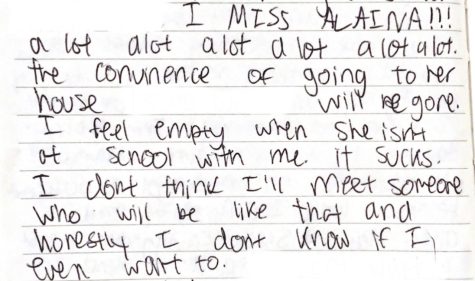 I MISS ALAINA!!!
a lot alot a lot a lot a lot alot.
the conunence of going to her
house will be gone.
I feel empty when she isnt
at school with me. it sucks.
I dont think I'll meet someone
who will be like that and
honestly I dont know if I
even want to.